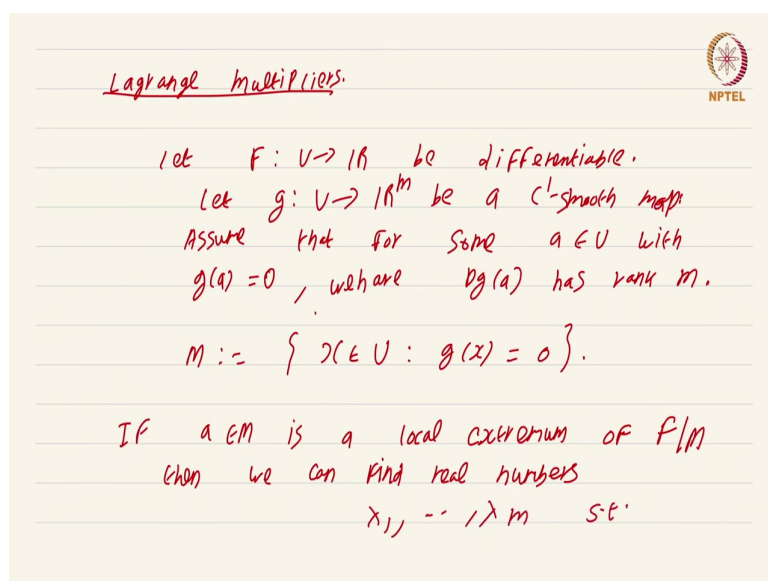 Lagrange Multipliers.
NPTEL
Let F: U → ℝ be differentiable.
Let g: U → ℝ^m be a C^1-smooth map.
Assume that for some a ∈ U with
g(a) = 0, we have Dg(a) has rank m.
M := { x ∈ U : g(x) = 0 }.
IF a ∈ M is a local extremum of F|M
then we can find real numbers
λ1, --, λm s.t.